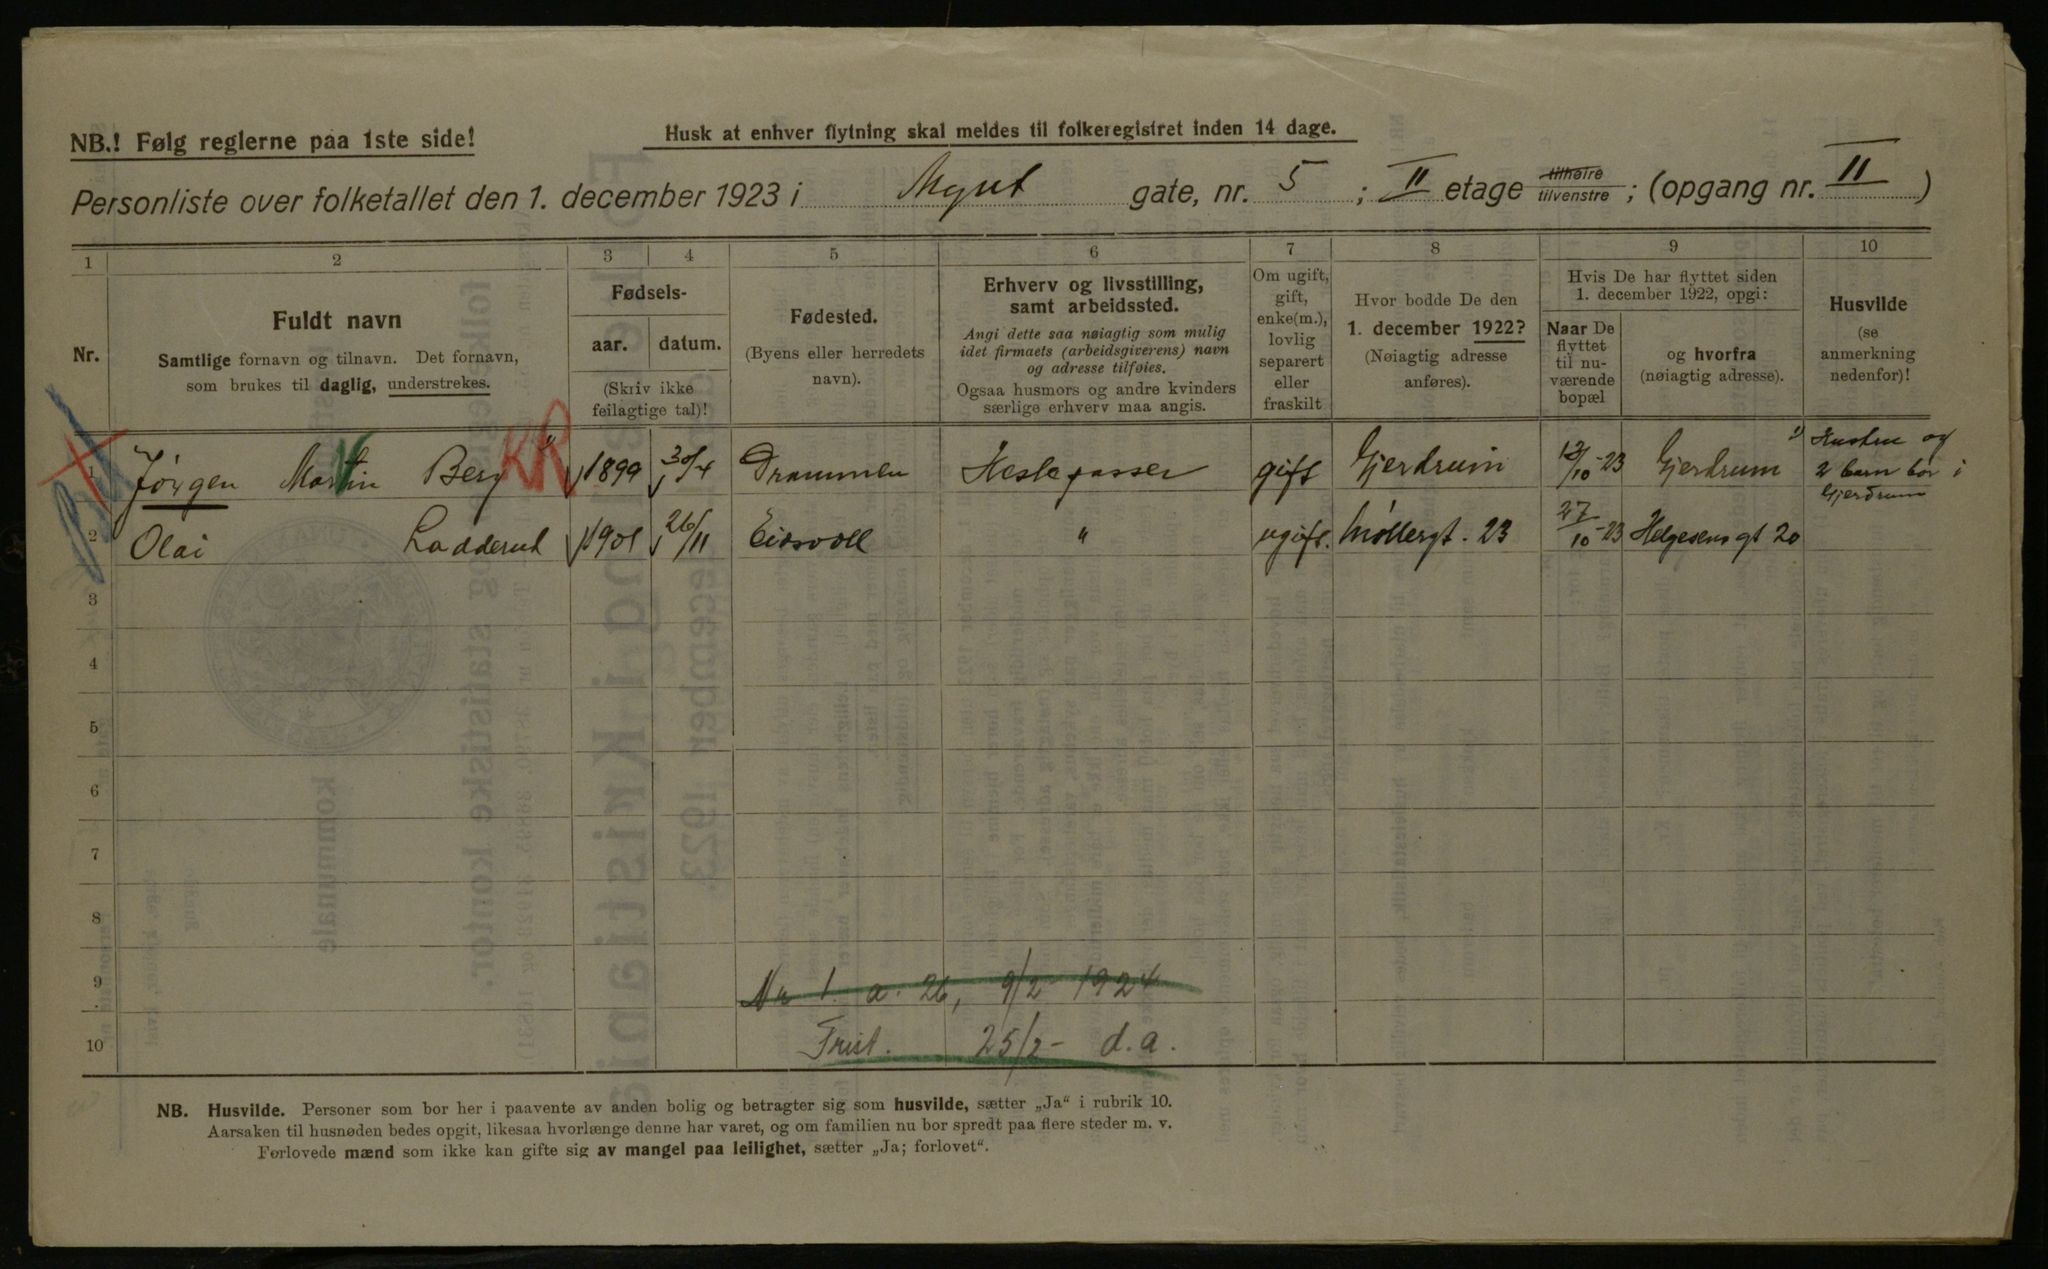 NB.! Følg reglerne paa 1ste side!
Husk at enhver flytning skal meldes til folkeregistret inden 14 dage.
Personliste over folketallet den 1. december 1923 i Mynt gate, nr. 5 ; II etage tilhøire tilvenstre ; (opgang nr. II )
1 2 3 4 5 6 7 8 9 10
Nr.
Fuldt navn
Samtlige fornavn og tilnavn. Det fornavn,
som brukes til daglig, understrekes.
Fødsels-
aar. datum.
(Skriv ikke
feilagtige tal)!
Fødested.
(Byens eller herredets
navn).
Erhverv og livsstilling,
samt arbeidssted.
Angi dette saa nøiagtig som mulig
idet firmaets (arbeidsgiverens) navn
og adresse tilføies.
Ogsaa husmors og andre kvinders
særlige erhverv maa angis.
Om ugift,
gift,
enke(m.),
lovlig
separert
eller
fraskilt
Hvor bodde De den
1. december 1922?
(Nøiagtig adresse
anføres).
Hvis De har flyttet siden
1. december 1922, opgi:
Naar De
flyttet
til nu-
værende
bopæl
og hvorfra
(nøiagtig adresse).
Husvilde
(se
anmerkning
nedenfor)!
1 Jørgen Martin Berg 1) KR 1899 30/4 Drammen Hestepasser gift Gjerdrum 12/10-23 Gjerdrum 1) Hustru og
2 barn bor i
Gjerdrum
2 Olai Ladderud 1901 26/11 Eidsvoll " ugift. Møllergt. 23 27/10-23 Helgesens gt 20
3
4
5
6
7
8
9 Nr 1. a. 26, 9/2 1924
10 Frist. 25/2- d.a.
NB. Husvilde. Personer som bor her i paavente av anden bolig og betragter sig som husvilde, sætter „Ja“ i rubrik 10.
Aarsaken til husnøden bedes opgit, likesaa hvorlænge denne har varet, og om familien nu bor spredt paa flere steder m. v.
Forlovede mænd som ikke kan gifte sig av mangel paa leilighet, sætter „Ja; forlovet“.